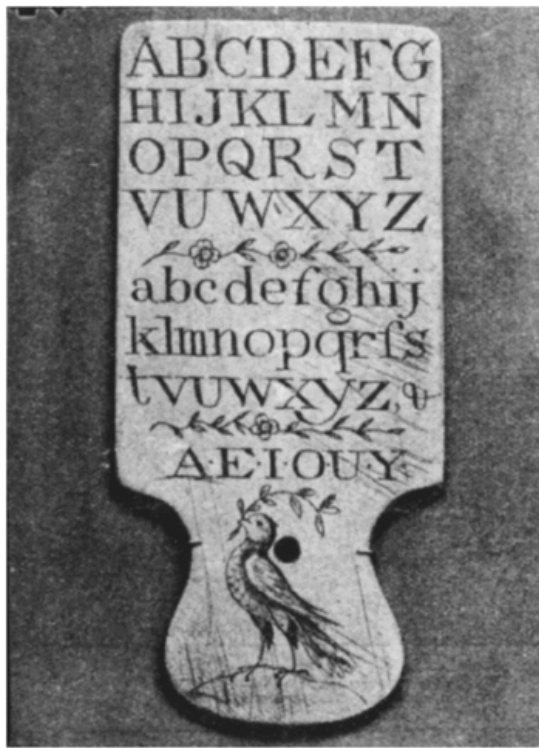 ABCDEFG
HIJKLMN
OPQRST
VUWXYZ
abcdefghij
klmnopqrſs
tvuwxyz,&
A·E·I·O·U·Y·